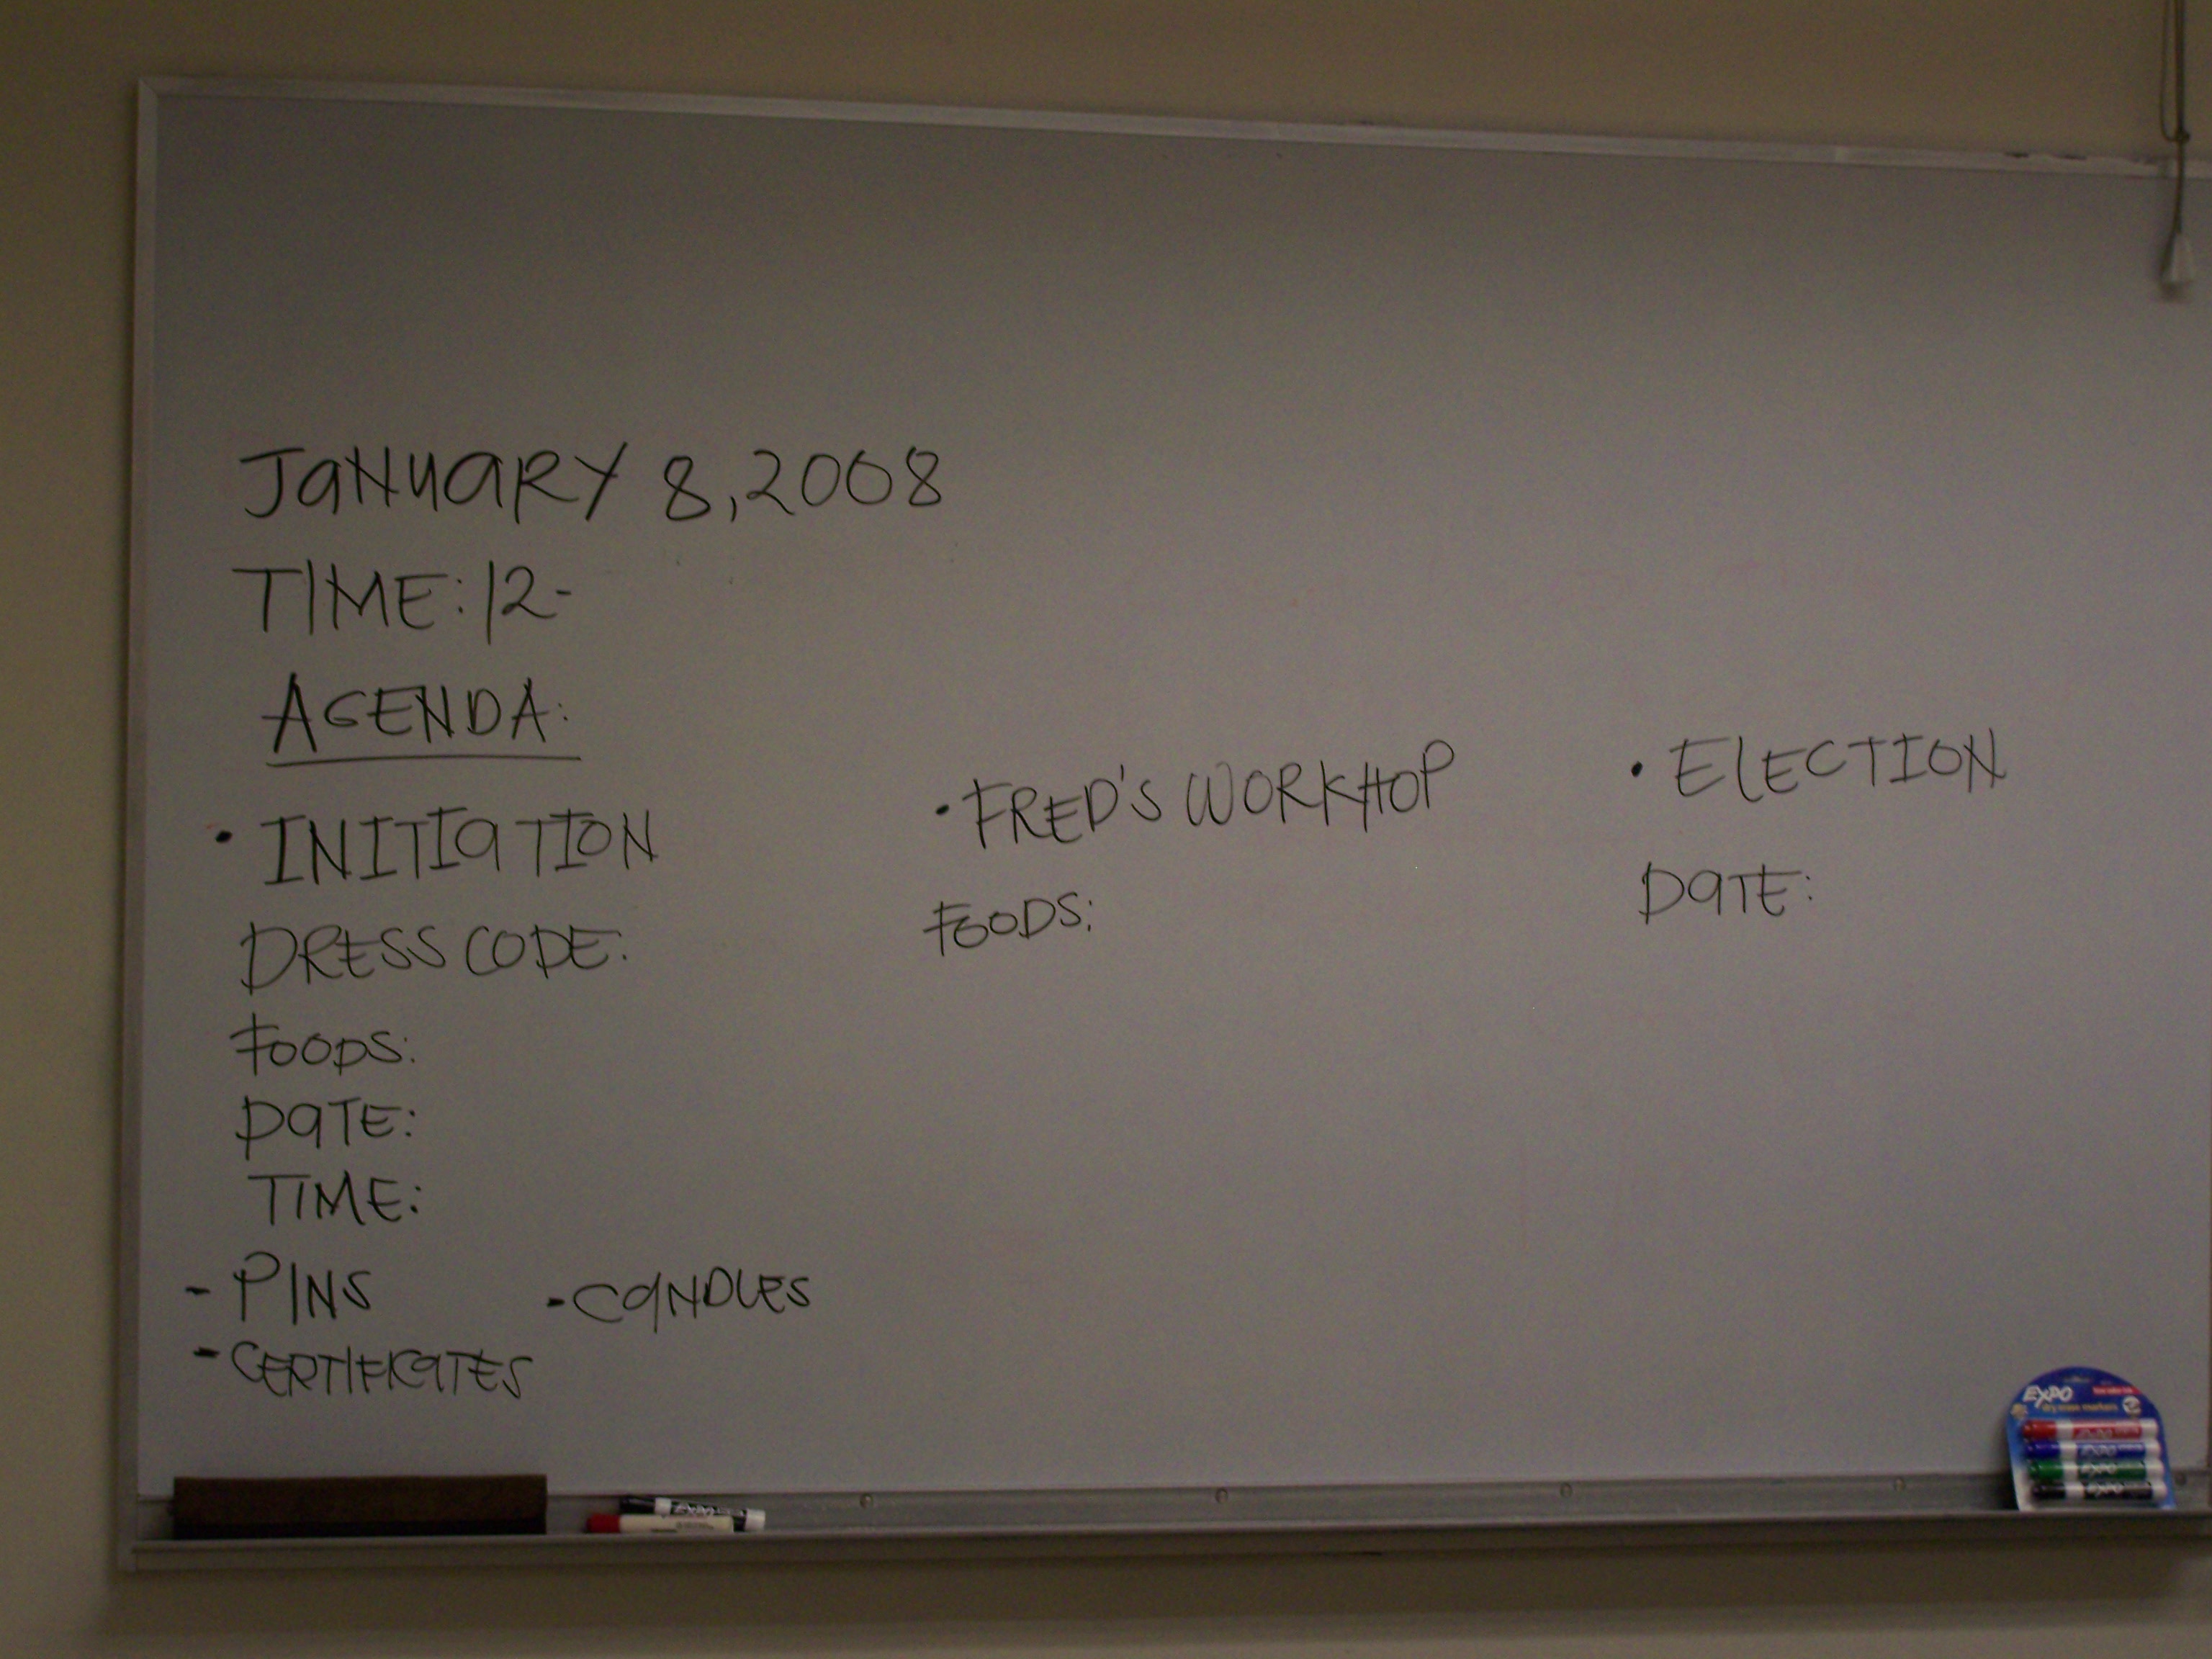 JANUARY 8, 2008
TIME: 12-
AGENDA:
• INITIATION
DRESS CODE:
FOODS:
DATE:
TIME:
- PINS
- CERTIFICATES
- CANDLES
• FRED'S WORKHOP
FOODS:
• ELECTION
DATE:
EXPO
dry erase markers
EXPO